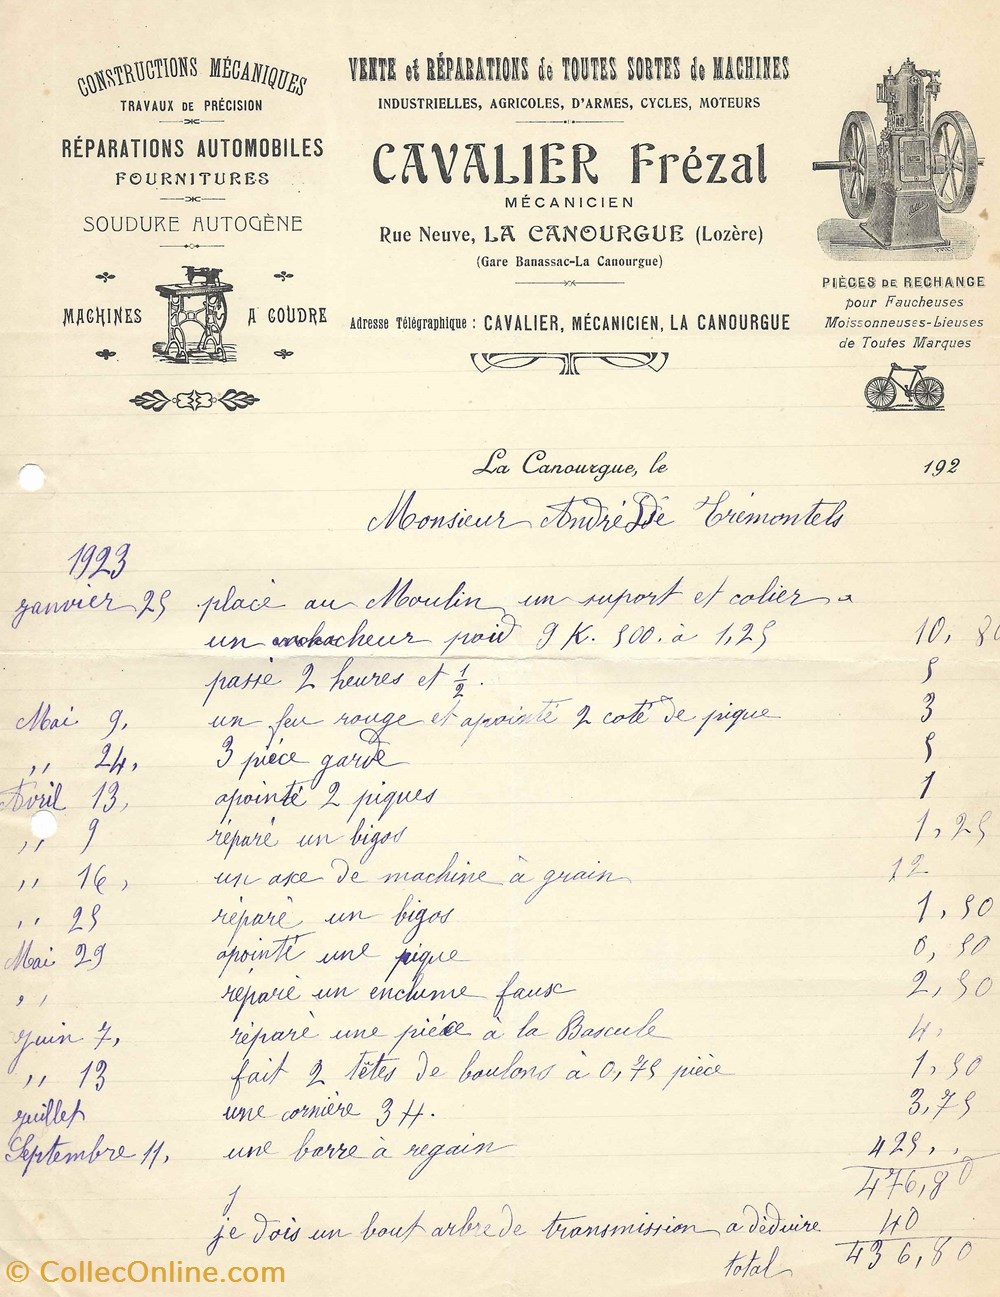 CONSTRUCTIONS MÉCANIQUES
TRAVAUX DE PRÉCISION
RÉPARATIONS AUTOMOBILES
FOURNITURES
SOUDURE AUTOGÈNE
MACHINES A COUDRE
VENTE et RÉPARATIONS de TOUTES SORTES de MACHINES
INDUSTRIELLES, AGRICOLES, D'ARMES, CYCLES, MOTEURS
CAVALIER Frézal
MÉCANICIEN
Rue Neuve, LA CANOURGUE (Lozère)
(Gare Banassac-La Canourgue)
Adresse Télégraphique : CAVALIER, MÉCANICIEN, LA CANOURGUE
PIÈCES DE RECHANGE
pour Faucheuses
Moissonneuses-Lieuses
de Toutes Marques
La Canourgue, le 192
Monsieur André de Trémontels
1923
janvier 25 placé au Moulin un suport et colier a
un poid 9 K. 500. à 1,25 10, 80
passé 2 heures et 1/2. 5
Mai 9, un feu rouge et apointé 2 coté de pique 3
,, 24, 3 pièce garde 5
Avril 13, apointé 2 piques 1
,, 9 réparé un bigos 1,25
,, 16, un axe de machine à grain 12
,, 25 réparé un bigos 1,50
Mai 29 apointé une pique 0,50
,, réparé un enclume faux 2,50
Juin 7, réparé une pièce à la Bascule 4,
,, 13 fait 2 têtes de boulons à 0,75 pièce 1,50
juillet une cornière 3 H. 3,75
Septembre 11, une barre à regain 425,,
476,80
je dois un bout arbre de transmission a déduire 40
total 436,80
© CollecOnline.com